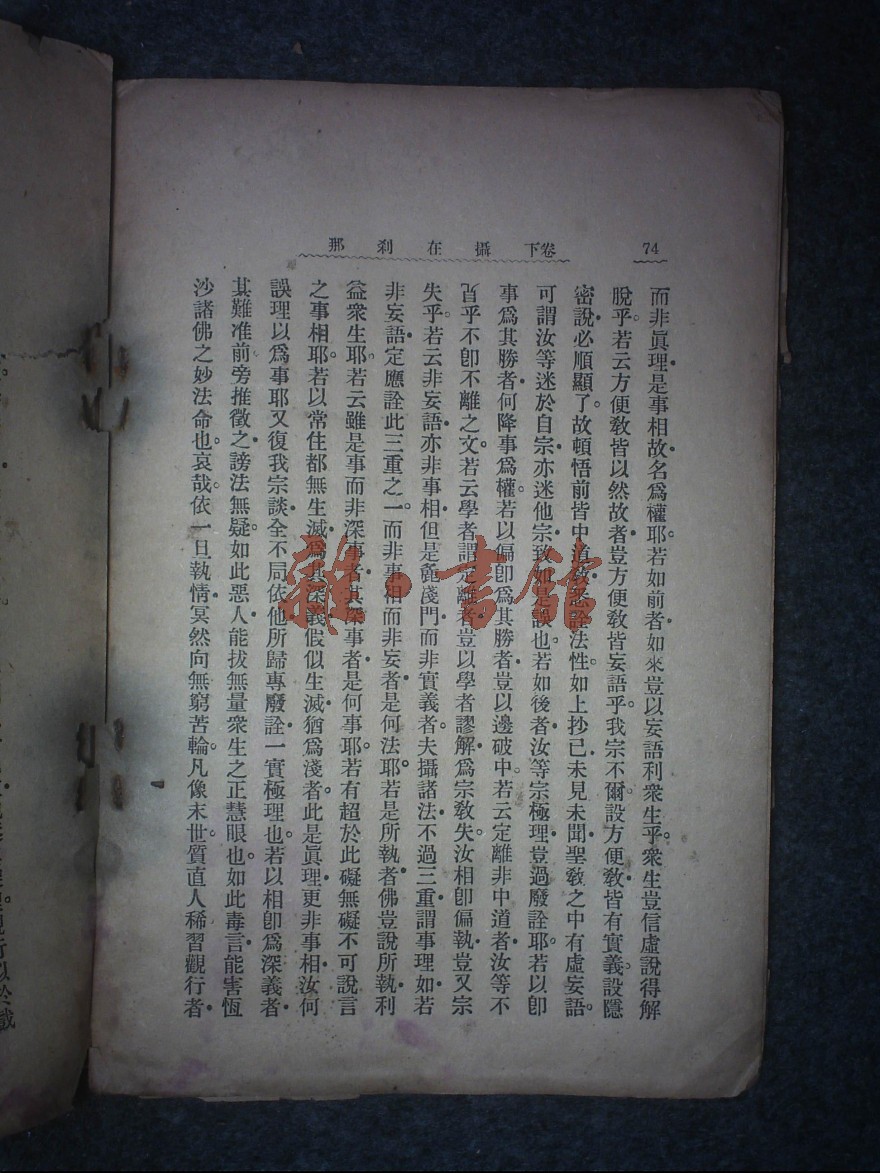 74
卷下 攝在刹那
而非眞理是事相故名爲權耶若如前者如來豈以妄語利衆生乎。衆生豈信虛說得解
脫乎。若云方便敎皆以然故者豈方便敎皆妄語乎。我宗不爾設方便敎皆有實義設隱
密說必順顯了。故頓悟前皆中道敎悉詮法性。如上抄已未見未聞聖敎之中有虛妄語。
可謂汝等迷於自宗亦迷他宗致如是誤也。若如後者汝等宗極理豈過廢詮耶。若以卽
事爲其勝者何降事爲權。若以偏卽爲其勝者豈以邊破中。若云定離非中道者汝等不
㫖乎不卽不離之文。若云學者謂定離者豈以學者謬解爲宗敎失。汝相卽偏執豈又宗
失乎。若云非妄語亦非事相但是麁淺門而非實義者。夫攝諸法不過三重謂事理如若
非妄語定應詮此三重之一。而非事相而非妄者是何法耶。若是所執者佛豈說所執利
益衆生耶。若云雖是事而非深事者其深事者是何事耶。若有超於此礙無礙不可說言
之事相耶。若以常住都無生滅爲其深義假似生滅猶爲淺者。此是眞理更非事相汝何
誤理以爲事耶又復我宗談全不同依他所歸專廢詮一實極理也。若以相卽爲深義者
其難准前旁推徵之謗法無疑。如此惡人能拔無量衆生之正慧眼也。如此毒言能害恆
沙諸佛之妙法命也。哀哉。依一旦執情冥然向無窮苦輪。凡像末世質直人稀習觀行者
雜·書館